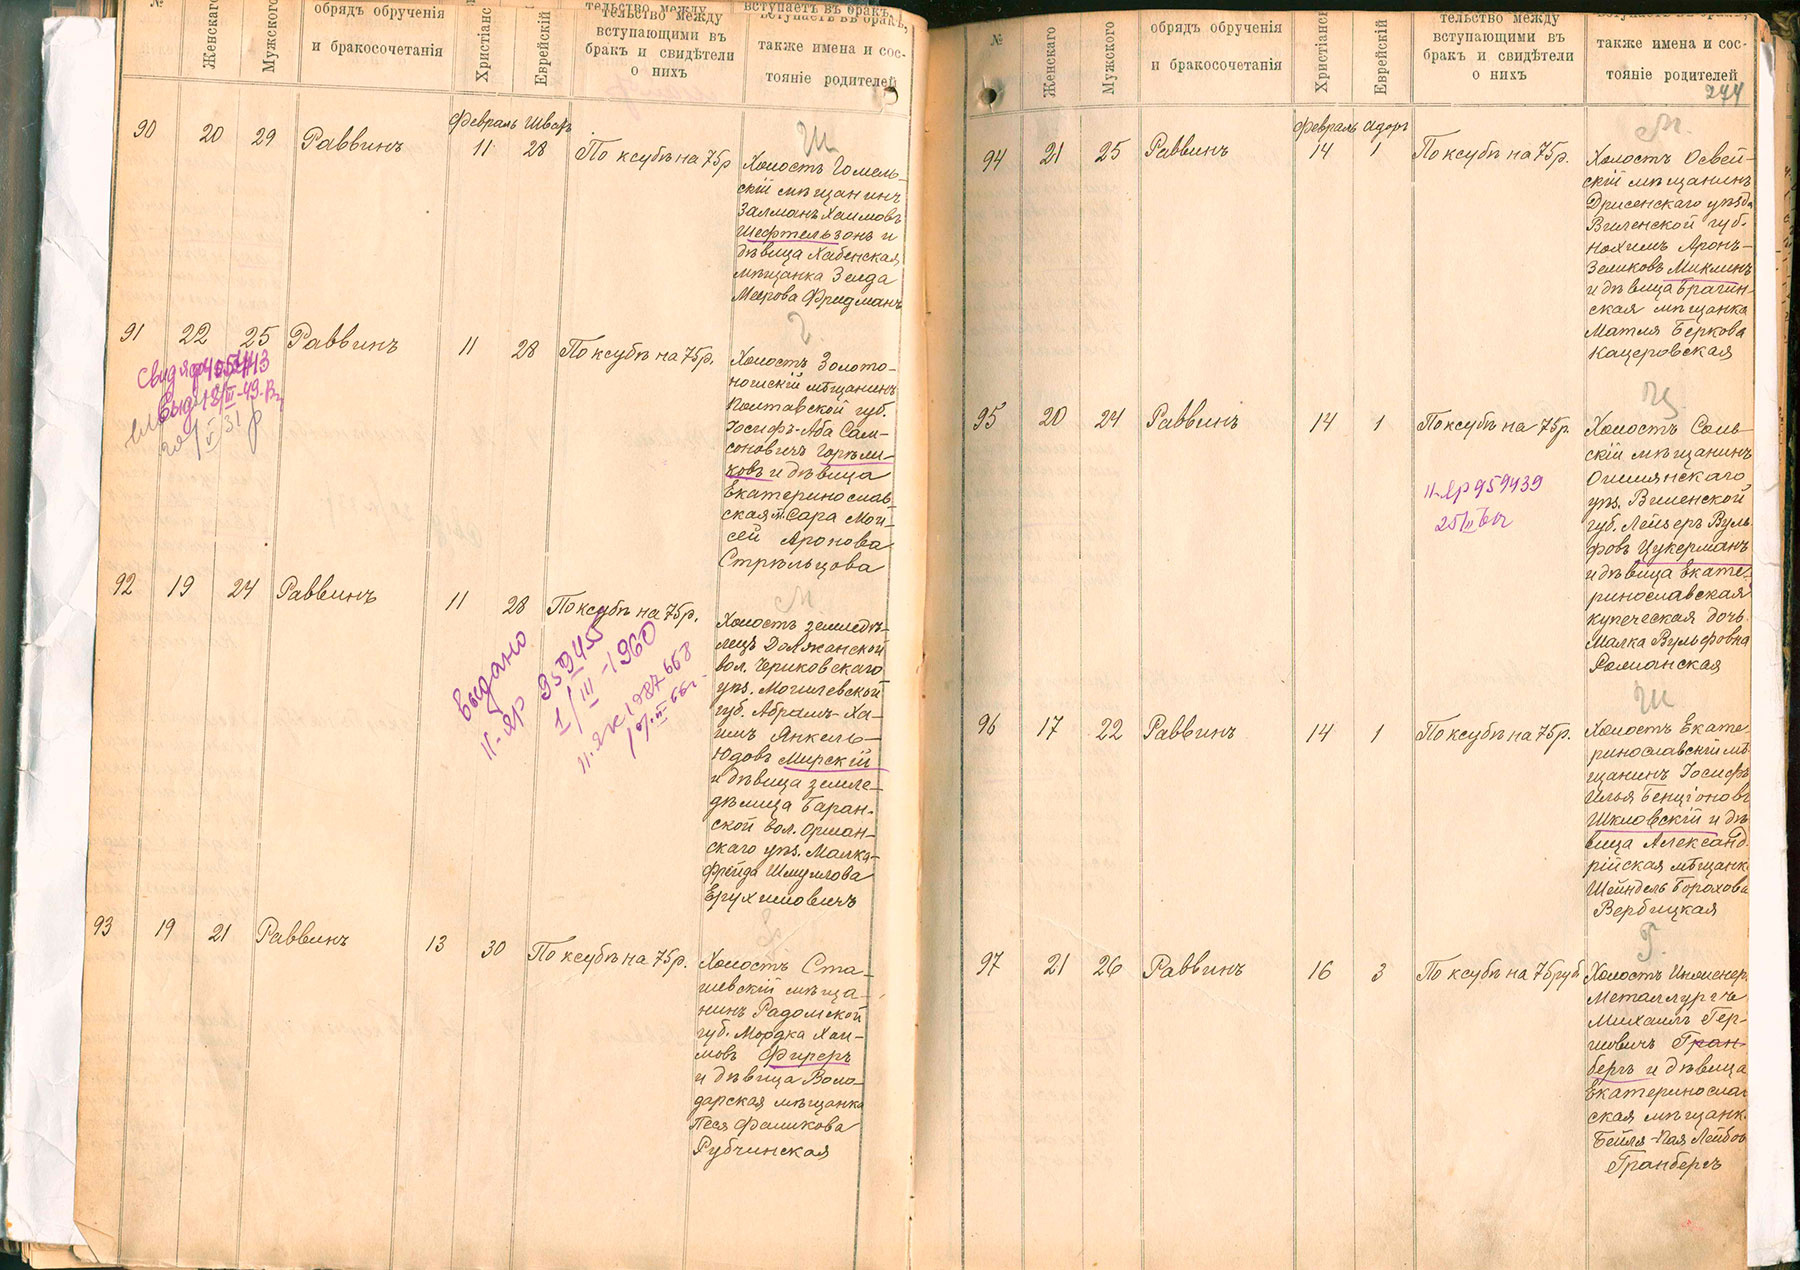 №
Женскаго
Мужского
обрядъ обрученія
и бракосочетанія
Христіанс
Еврейскій
тельство между
вступающими въ
бракъ и свидѣтели
о нихъ
вступаетъ въ бракъ,
также имена и сос-
тояніе родителей
90
20
29
Раввинъ
Февраль Шватъ
11
28
По ксубѣ на 75р
Ш
Холостъ Гомель-
скій мѣщанинъ
Залманъ Хаимовъ
Шефтельзонъ и
дѣвица Хабенская
мѣщанка Зелда
Меерова Фридманъ
91
22
25
Раввинъ
11
28
По ксубѣ на 75р.
Холостъ Золото-
ношскій мѣщанинъ
Полтавской губ.
Іосифъ-Аба Сам-
соновичъ Горѣли-
ковъ и дѣвица
Екатеринослав
ская м. Сара Мои-
сей Аронова
Стрѣльцова
92
19
24
Раввинъ
11
28
По ксубѣ на 75р.
выдано
II-ЯР 959455
1/III-1960
II-ЯК 1987668
М.
Холостъ земледѣ-
лецъ Должанской
вол. Чериковскаго
уѣз. Могилевской
губ. Абрамъ-Ха-
имъ Янкель-
Юдовъ Мирскій
и дѣвица земле-
дѣлица Баран-
ской вол. Оршан-
скаго уѣз. Малка-
Фрейда Шмуилова
Ерухимовичъ
93
19
21
Раввинъ
13
30
По ксубѣ на 75р.
Холостъ Ста-
шевскій мѣща-
нинъ Радомской
губ. Мордка Хаи-
мовъ Фиреръ
и дѣвица Воло-
дарская мѣщанка
Песя Фаликова
Рубчинская
№
Женскаго
Мужского
обрядъ обрученія
и бракосочетанія
Христіанс
Еврейскій
тельство между
вступающими въ
бракъ и свидѣтели
о нихъ
вступаетъ въ бракъ,
также имена и сос-
тояніе родителей
244
94
21
25
Раввинъ
Февраль Адоръ
14
1
По ксубѣ на 75р.
М.
Холостъ Освей-
скій мѣщанинъ
Дрисенскаго уѣзда
Виленской губ.
Нохимъ Аронъ-
Зеликовъ Миклинъ
и дѣвица Брагин-
ская мѣщанка
Матля Беркова
Кацеровская
95
20
24
Раввинъ
14
1
По ксубѣ на 75р
II-ЯР 959439
Ц
Холостъ Соль-
скій мѣщанинъ
Ошмянскаго
уѣз. Виленской
губ. Лейзеръ Вуль-
фовъ Цукерманъ
и дѣвица Екате-
ринославская
купеческая дочь
Малка Вульфовна
Роміанская
96
17
22
Раввинъ
14
1
По ксубѣ на 75р.
Ш
Холостъ Екате-
ринославскій мѣ-
щанинъ Іосифъ
Илья Бенціоновъ
Шкловскій и дѣ
вица Александ
рійская мѣщанк
Шейндель Борохова
Вербицкая
97
21
26
Раввинъ
16
3
По ксубѣ на 75руб
Г.
Холостъ Инженер
Металлургъ
Михаилъ Гер-
шовичъ Гран-
бергъ и дѣвица
Екатеринослав
ская мѣщанк.
Бейля-Хая Лейбов
Гранбергъ